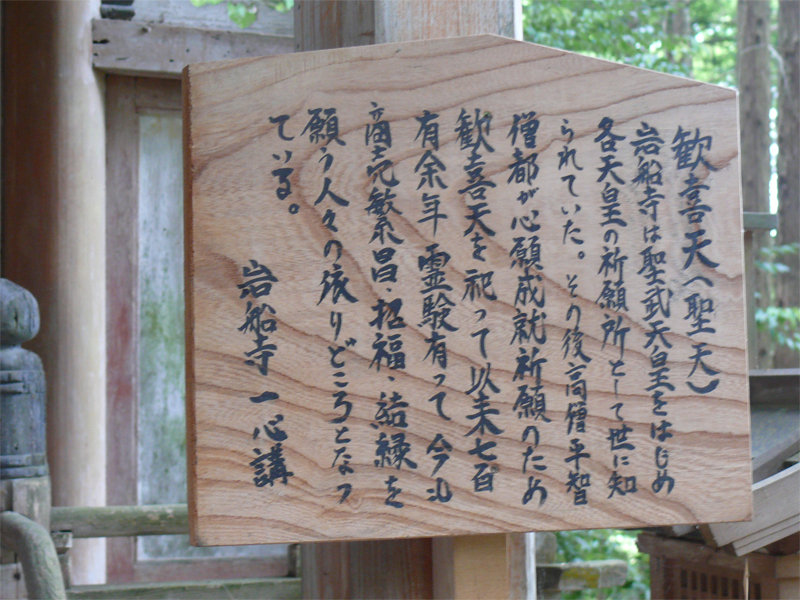 歓喜天(聖天)
岩船寺は聖武天皇をはじめ
各天皇の祈願所として世に知
られていた。その後高僧平智
僧都が心願成就祈願のため
歓喜天を祀って以来七百
有余年霊験有って今も
商売繁昌、招福、結縁を
願う人々の依りどころとなっ
ている。
岩船寺一心講